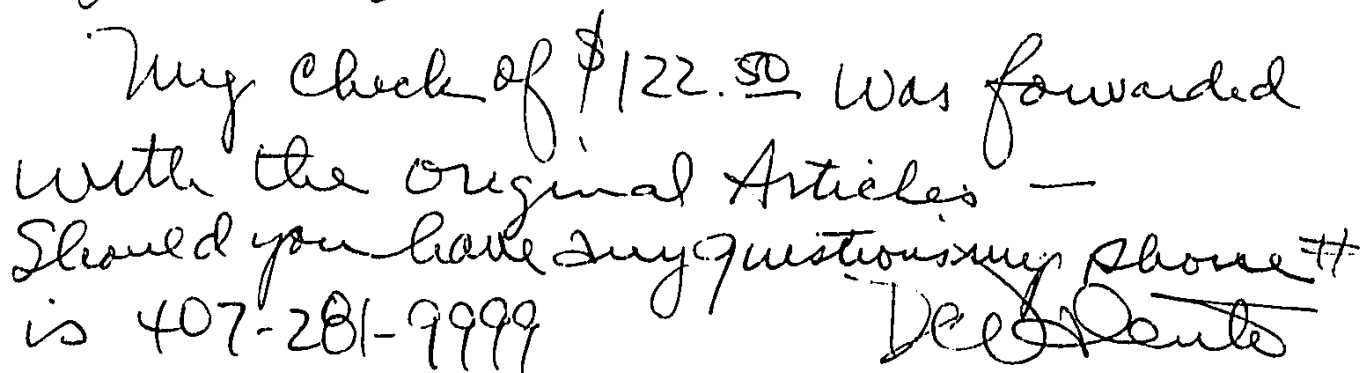 My check of $122.50 was forwarded
with the original Articles —
Should you have any questions my phone #
is 407-281-9999